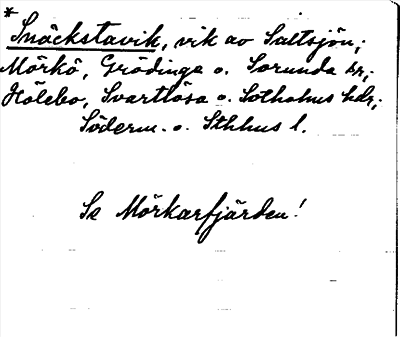 * Snäckstavik, vik av Saltsjön;
Mörkö, Grödinge o. Sorunda sr,;
Hölebo, Svartlösa o. Sotholms hdr,;
Söderm. o. Sthlms l.
Se Mörkarfjärden!